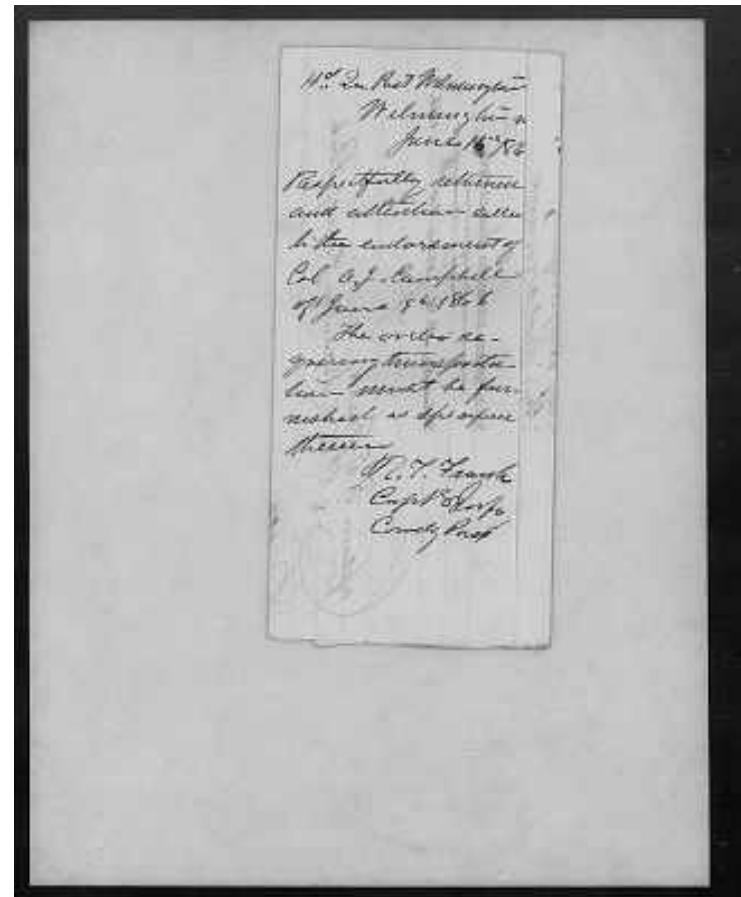 Hd Qrs Post Wilmington
Wilmington N
June 16th /66
Respectfully returned
and attention called
to the endorsement of
Col A. J. Campbell
of June 9th 1866
The order re-
quiring transporta-
tion must be fur-
nished as
therein
R. T. Frank
Capt &
Comdg Post